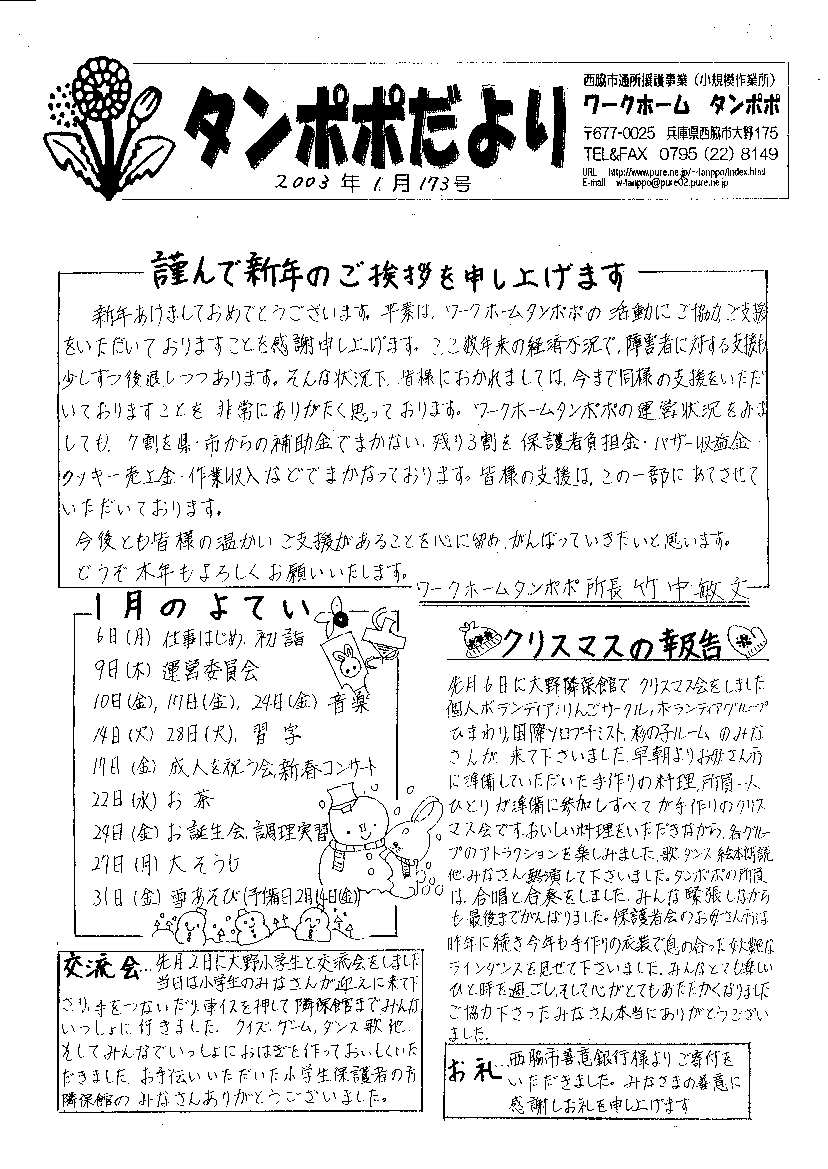 タンポポだより
2003年1月173号
西脇市通所援護事業（小規模作業所）
ワークホーム タンポポ
〒677-0025 兵庫県西脇市大野175
TEL&FAX 0795 (22) 8149
URL http://www.pure.ne.jp/~tanppo/index.html
E-mail w-tanppo@pure02.pure.ne.jp
謹んで新年のご挨拶を申し上げます
新年あけましておめでとうございます。平素は、ワークホームタンポポの活動にご協力、ご支援
をいただいておりますことを感謝申し上げます。ここ数年来の経済状況で、障害者に対する支援も
少しずつ後退しつつあります。そんな状況下、皆様におかれましては、今まで同様の支援をいただ
いておりますことを非常にありがたく思っております。ワークホームタンポポの運営状況をみま
しても、7割を県・市からの補助金でまかない、残り3割を保護者負担金・バザー収益金・
クッキー売上金・作業収入などでまかなっております。皆様の支援は、この一部にあてさせて
いただいております。
今後とも皆様の温かいご支援があることを心に留め、がんばっていきたいと思います。
どうぞ本年もよろしくお願いいたします。
ワークホームタンポポ所長 竹中敏文
1月のよてい
6日(月) 仕事はじめ、初詣
9日(木) 運営委員会
10日(金), 17日(金), 24日(金) 音楽
14日(火) 28日(火), 習字
17日(金) 成人を祝う会,新春コンサート
22日(水) お茶
24日(金) お誕生会、調理実習
27日(月) 大そうじ
31日(金) 雪あそび(予備日2月14日(金))
クリスマスの報告
先月6日に大野隣保館でクリスマス会をしました
個人ボランティア、りんごサークル、ボランティアグループ
ひまわり、国際ソロプチミスト、杉の子ルームのみな
さんが、来て下さいました。早朝よりお母さん方
に準備していただいた手作りの料理、所員一人
ひとりが準備に参加しすべてが手作りのクリス
マス会です。おいしい料理をいただきながら、各グルー
プのアトラクションを楽しみました。歌 ダンス 絵本朗読
他、みなさん熱演して下さいました。タンポポの所員
は、合唱と合奏をしました。みんな緊張しながら
も最後までがんばりました。保護者会のお母さん方は
昨年に続き今年も手作りの衣装で息の合った妖艶な
ラインダンスを見せて下さいました。みんなとても楽しい
ひと時を過ごし、そして心がとてもあたたかくなりました
ご協力下さったみなさん本当にありがとうござい
ました。
交流会…先月2日に大野小学生と交流会をしました
当日は小学生のみなさんが迎えに来て下
さり、手をつないだり、車イスを押して隣保館までみんな
いっしょに行きました。クイズ、ゲーム、ダンス 歌 他
そしてみんなでいっしょにおはぎを作っておいしくいた
だきました。お手伝いいただいた小学生保護者の方
隣保館のみなさんありがとうございました。
お礼…西脇市善意銀行様よりご寄付を
いただきました。みなさまの善意に
感謝しお礼を申し上げます